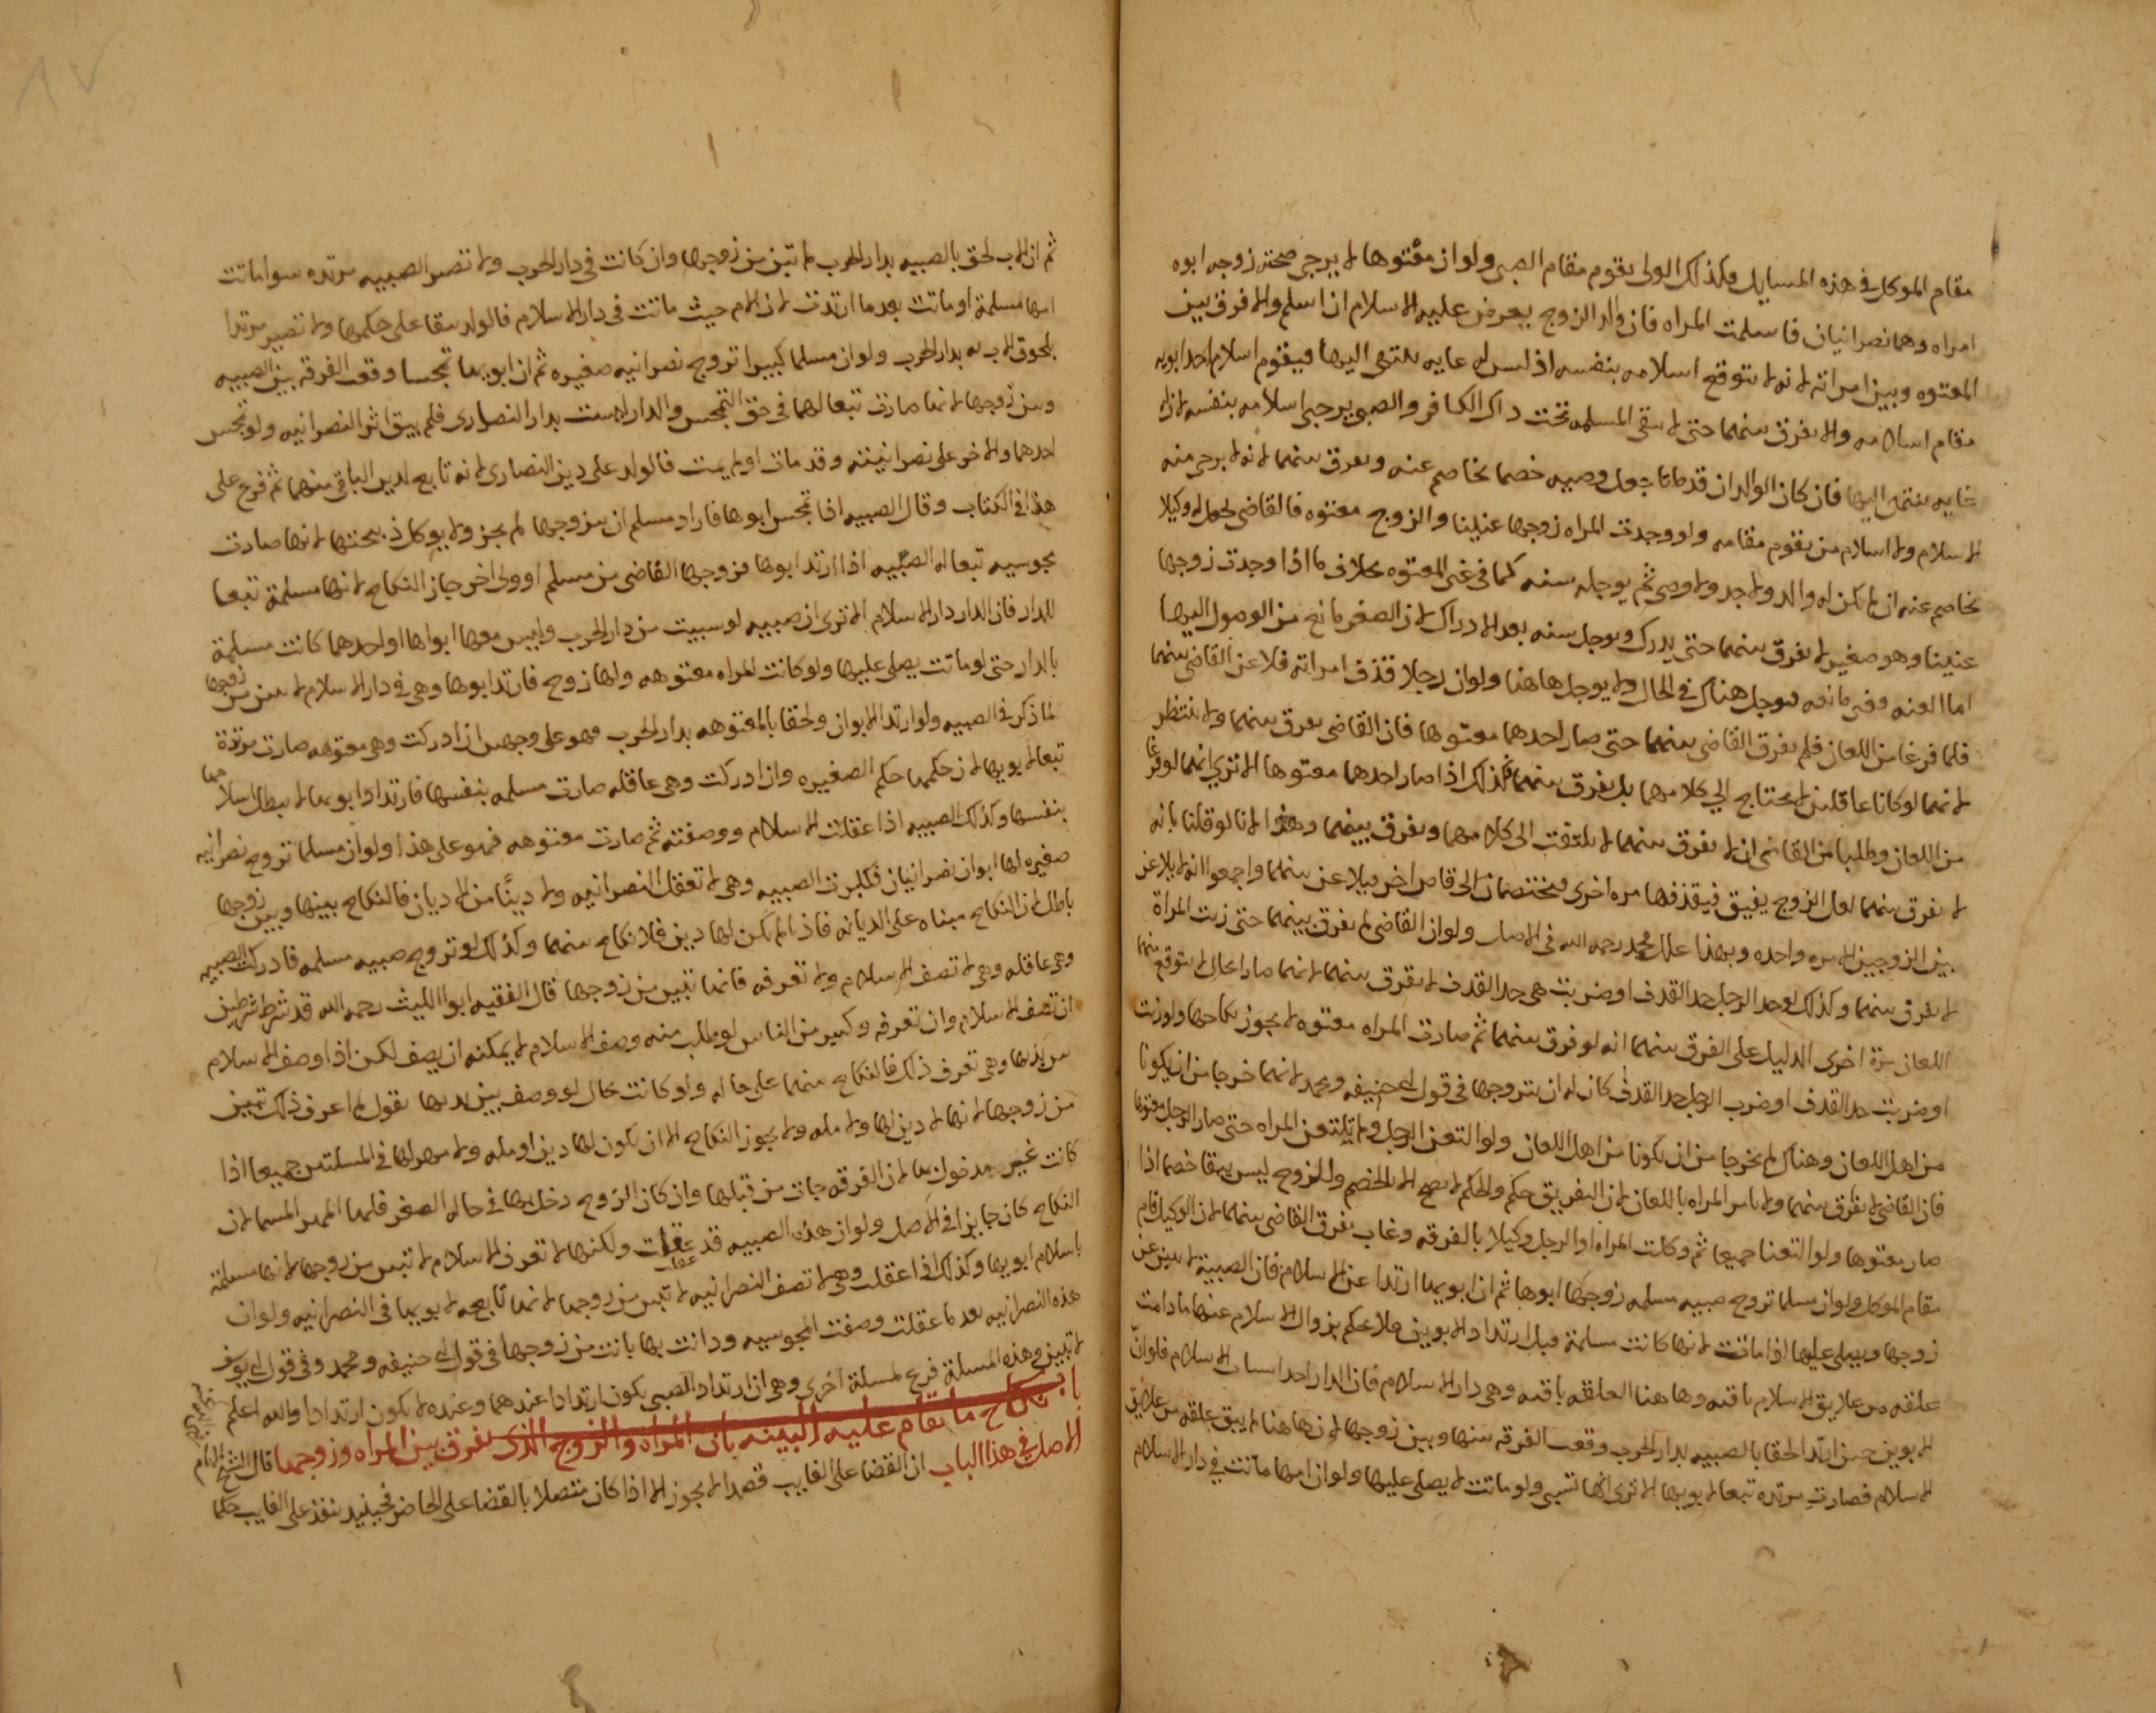 مقام الموكل في هذه المسايل وكذلك الولى يقوم مقام الصبى ولو ان معتوها لا يرجى صحته زوجه ابوه
امراه وهما نصرانيان فاسلمت المراه فان والد الزوج يعرض عليه الاسلام ان اسلم والا فرق بين
المعتوه وبين امراته لانه لا يتوقع اسلامه بنفسه اذ ليس له غايه ينتهى اليها فيقوم اسلام احد ابويه
مقام اسلامه والا يفرق بينهما حتى لا تبقى المسلمه تحت ذاك الكافر والصبى يرجى اسلامه بنفسه لان له
غايه ينتهى اليها فان كان الوالدان قد ماتا جعل وصيه خصما يخاصم عنه ويفرق بينهما لانه لا يرجى منه
الاسلام ولا اسلام من يقوم مقامه ولو وجدت المراه زوجها عنينا والزوج معتوه فالقاضى يجعل له وكيلا
يخاصم عنه ان لم يكن له والد ولا جد ولا وصى ثم يوجله سنه كما في غير المعتوه بخلاف ما اذا وجدت زوجها
عنينا وهو صغير لا يفرق بينهما حتى يدرك ويوجل سنه بعد الادراك لان الصغر مانع من الوصول اليها
اما العته فغير مانع فيوجل هناك في الحال ولا يوجل هاهنا ولو ان رجلا قذف امراته فلاعن القاضى بينهما
فلما فرغا من اللعان فلم يفرق القاضى بينهما حتى صار احدهما معتوها فان القاضى يفرق بينهما ولا ينتظر
لانهما لو كانا عاقلين لا يحتاج الى كلامهما بل يفرق بينهما فكذلك اذا صار احدهما معتوها الا ترى انهما لو فرغا
من اللعان وطلبا من القاضى ان لا يفرق بينهما لا يلتفت الى كلامهما ويفرق بينهما وهذا لانا لو قلنا بانه
لا يفرق بينهما لعل الزوج يفيق فيقذفها مره اخرى فيختصمان الى قاض اخر فيلاعن بينهما واجمعوا انه لا يلاعن
بين الزوجين الا مره واحده وبهذا علل محمد رحمه الله في الاصل ولو ان القاضى لم يفرق بينهما حتى زنت المراة
لا يفرق بينهما وكذلك لو حد الرجل حد القذف او ضربت هى حد القذف لا يفرق بينهما لانهما صارا بحال لا يتوقع بينهما
اللعان مرة اخرى الدليل على الفرق بينهما انه لو فرق بينهما ثم صارت المراه معتوه لا يجوز نكاحها ولو زنت
او ضربت حد القذف او ضرب الرجل حد القذف كان له ان يتزوجها في قول ابى حنيفه ومحمد لانهما خرجا من ان يكونا
من اهل اللعان وهناك لم يخرجا من ان يكونا من اهل اللعان ولو التعن الرجل ولم تلتعن المراه حتى صار الرجل معتوها
فان القاضى لا يفرق بينهما ولا يامر المراه باللعان لان التفريق حكم والحكم لا يصح الا بالخصم والزوج ليس يبقا خصما اذا
صار معتوها ولو التعنا جميعا ثم وكلت المراه او الرجل وكيلا بالفرقه وغاب يفرق القاضى بينهما لان الوكيل قام
مقام الموكل ولو ان مسلما تزوج صبيه مسلمه زوجها ابوها ثم ان ابويها ارتدا عن الاسلام فان الصبية لا تبين عن
زوجها ويصلى عليها اذا ماتت لانها كانت مسلمة قبل ارتداد الابوين فلا يحكم بزوال الاسلام عنها ما دامت
علقه من علايق الاسلام باقيه وهاهنا العلقه باقيه وهى دار الاسلام فان الدار احد اسباب الاسلام فلو ان
الابوين حين ارتدا لحقا بالصبيه بدار الحرب وقعت الفرقه بينها وبين زوجها لان هاهنا لم يبق علقه من علايق
الاسلام فصارت مرتده تبعا لابويها الا ترى انها تسبى ولو ماتت لا يصلى عليها ولو ان امها ماتت في دار الاسلام
ثم ان الاب لحق بالصبيه بدار الحرب لم تبن من زوجها وان كانت في دار الحرب ولا تصير الصبيه مرتده سوا ماتت
امها مسلمة او ماتت بعد ما ارتدت لان الام حيث ماتت في دار الاسلام فالولد يبقا على حكمها ولا تصير مرتدا
بلحوق الاب به بدار الحرب ولو ان مسلما كبيرا تزوج نصرانيه صغيره ثم ان ابويها تمجسا وقعت الفرقه بين الصبيه
وبين زوجها لانها صارت تبعا لهما في حق التمجس والدار ليست بدار النصارى فلم يبق اثر النصرانيه ولو تمجس
احدهما والاخر على نصرانيته وقد مات او لم يمت فالولد على دين النصارى لانه تابع لدين الباقى منهما ثم فرع على
هذا في الكتاب وقال الصبيه اذا تمجس ابوها فاراد مسلم ان يتزوجها لم يجز ولا يوكل ذبيحتها لانها صارت
مجوسيه تبعا له الصبيه اذا ارتد ابوها فزوجها القاضى من مسلم او ولى اخر جاز النكاح لانها مسلمة تبعا
للدار فان الدار دار الاسلام الا ترى ان صبيه لو سبيت من دار الحرب وليس معها ابواها او احدهما كانت مسلمة
بالدار حتى لو ماتت يصلى عليها ولو كانت المراه معتوهه ولها زوج فارتد ابوها وهى في دار الاسلام لا تبين من زوجها
لما ذكر في الصبيه ولو ارتد الابوان ولحقا بالمعتوهه بدار الحرب فهو على وجهين ان ادركت وهى معتوهه صارت مرتدة
تبعا لابويها لان حكمها حكم الصغيره وان ادركت وهى عاقله صارت مسلمه بنفسها فارتداد ابويها لا يبطل اسلامها
بنفسها وكذلك الصبيه اذا عقلت الاسلام ووصفته ثم صارت معتوهه فهو على هذا ولو ان مسلما تزوج نصرانيه
صغيره لها ابوان نصرانيان فكبرت الصبيه وهى لا تعقل النصرانيه ولا دينًا من الاديان فالنكاح بينها وبين زوجها
باطل لان النكاح مبناه على الديانه فاذا لم يكن لها دين فلا نكاح بينهما وكذلك لو تزوج صبيه مسلمه فادركت الصبيه
وهى عاقله وهى لا تصف الاسلام ولا تعرفه فانها تبين من زوجها قال الفقيه ابو الليث رحمه الله قد شرط شرطين
ان تصف الاسلام وان تعرفه وكثير من الناس لو طلب منه وصف الاسلام لا يمكنه ان يصف لكن اذا وصف الاسلام
بين يديها وهى تعرف ذلك فالنكاح بينهما على حاله ولو كانت بحال لو وصف بين يديها تقول لا اعرف ذلك تبين
من زوجها لانها لا دين لها ولا مله ولا يجوز النكاح الا ان يكون لها دين او مله ولا مهر لها في المسلتين جميعا اذا
كانت غير مدخول بها لان الفرقه جات من قبلها وان كان الزوج دخل بها في حاله الصغر فلها المهر المسما لان
النكاح كان جايزا في الاصل ولو ان هذه الصبيه قد عقلت ولكنها لا تعرف الاسلام لا تبين من زوجها لانها مسلمة
باسلام ابويها وكذلك اذا عقلت وهى لا تصف النصرانيه لا تبين من زوجها لانها تابعه لابويها في النصرانيه ولو ان
هذه النصرانيه بعد ما عقلت وصفت المجوسيه ودانت بها بانت من زوجها في قول ابى حنيفه ومحمد وفي قول ابى يوسف
لا تبين وهذه المسلة فرع لمسلة اخرى وهى ان ارتداد الصبى يكون ارتدادا عندهما وعنده لا يكون ارتدادا والله اعلم
باب نكاح ما تقام عليه البينه بان المراه والزوج الذى يفرق بين المراه وزوجها قال الشيخ الامام
الاصل في هذا الباب ان القضا على الغايب قصدا لا يجوز الا اذا كان متصلا بالقضا على الحاضر فحينيذ ينفذ على الغايب حكما